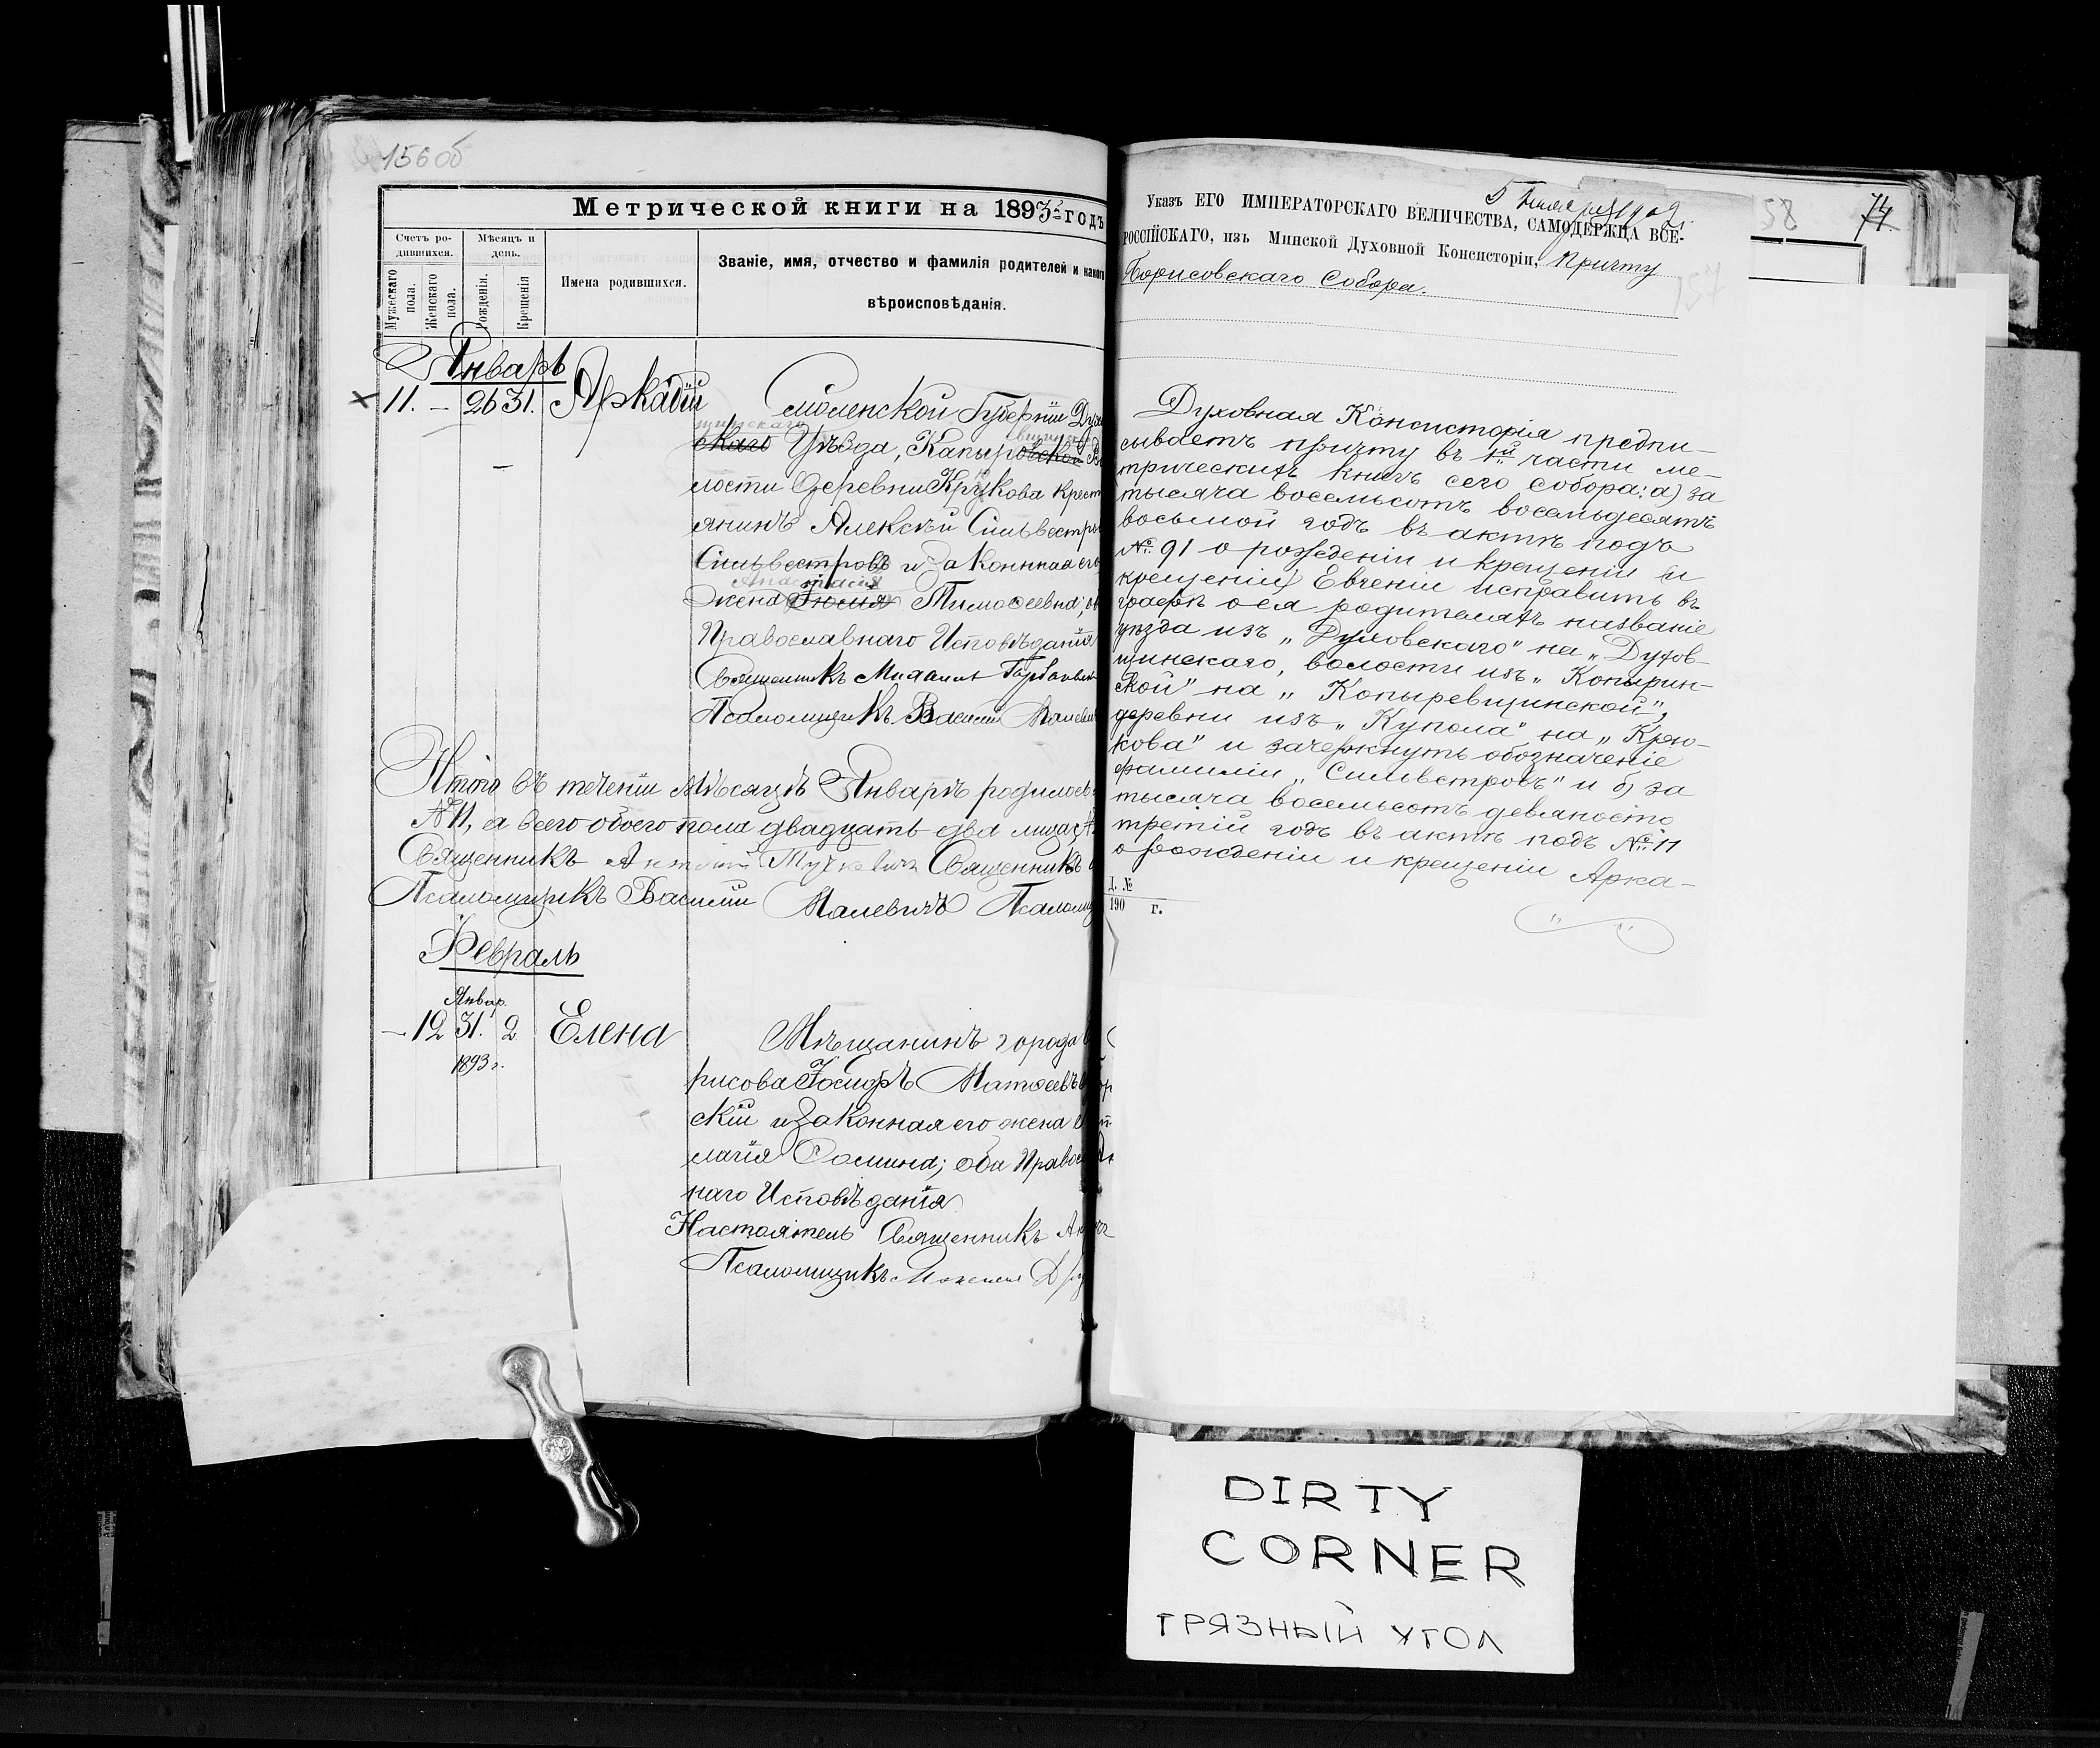 156об
Метрической книги на 1893 годъ
Счетъ ро-
дившихся.
Мѣсяцъ и
день.
Мужескаго
пола.
Женскаго
пола.
Рожденія.
Крещенія
Имена родившихся.
Званіе, имя, отчество и фамилія родителей и какого
вѣроисповѣданія.
Январь
11. – 26 31. Аркадій
Смоленской Губерніи Дух
щинскаго
скаго Уѣзда, Капыровской В
лости деревни Крюкова крест
янинъ Алексѣй Сильвестръ
Сильвестровъ и законная его
Анастасія
жена Тимоѳеевна; об
Православнаго Исповѣданія
Священникъ Михаилъ
Псаломщикъ Василій Малевич
Итого въ теченіи мѣсяцѣ Январѣ родилось
№ 11, а всего обоего пола двадцать два лица
Священникъ Антоній Священникъ
Псаломщикъ Василій Малевичъ Псаломщ
Февраль
Январ.
– 12 31. 2 Елена
1893 г.
Мѣщанинъ города
рисова Іосифъ Матѳеевъ
скій и законная его жена
лагія Ѳомина; оба Правос
наго Исповѣданія
Настоятель Священникъ
Псаломщикъ
58
74.
157
Указъ ЕГО ИМПЕРАТОРСКАГО ВЕЛИЧЕСТВА, САМОДЕРЖЦА ВСЕ-
РОССІЙСКАГО, изъ Минской Духовной Консисторіи, Причту
Борисовскаго Собора.
Духовная Консисторія предпи-
сываетъ причту въ 1й части ме-
трическихъ книгъ сего собора: а) за
тысяча восемьсотъ восемьдесятъ
восьмой годъ въ актѣ подъ
№ 91 о рожденіи и крещеніи (и
крещеніи) Евгеніи исправить въ
графѣ о ея родителяхъ названіе
уѣзда изъ „Духовскаго" на „Духов-
щинскаго, волости изъ „Копырин-
ской" на „Копыревщинской",
деревни изъ „Купола" на „Крю-
кова" и зачеркнуть обозначеніе
фамиліи „Сильвстровъ" и б) за
тысяча восемьсотъ девяносто
третій годъ въ актѣ подъ № 11
о рожденіи и крещеніи Арка-
Д. №
190 г.
DIRTY
CORNER
ГРЯЗНЫЙ УГОЛ